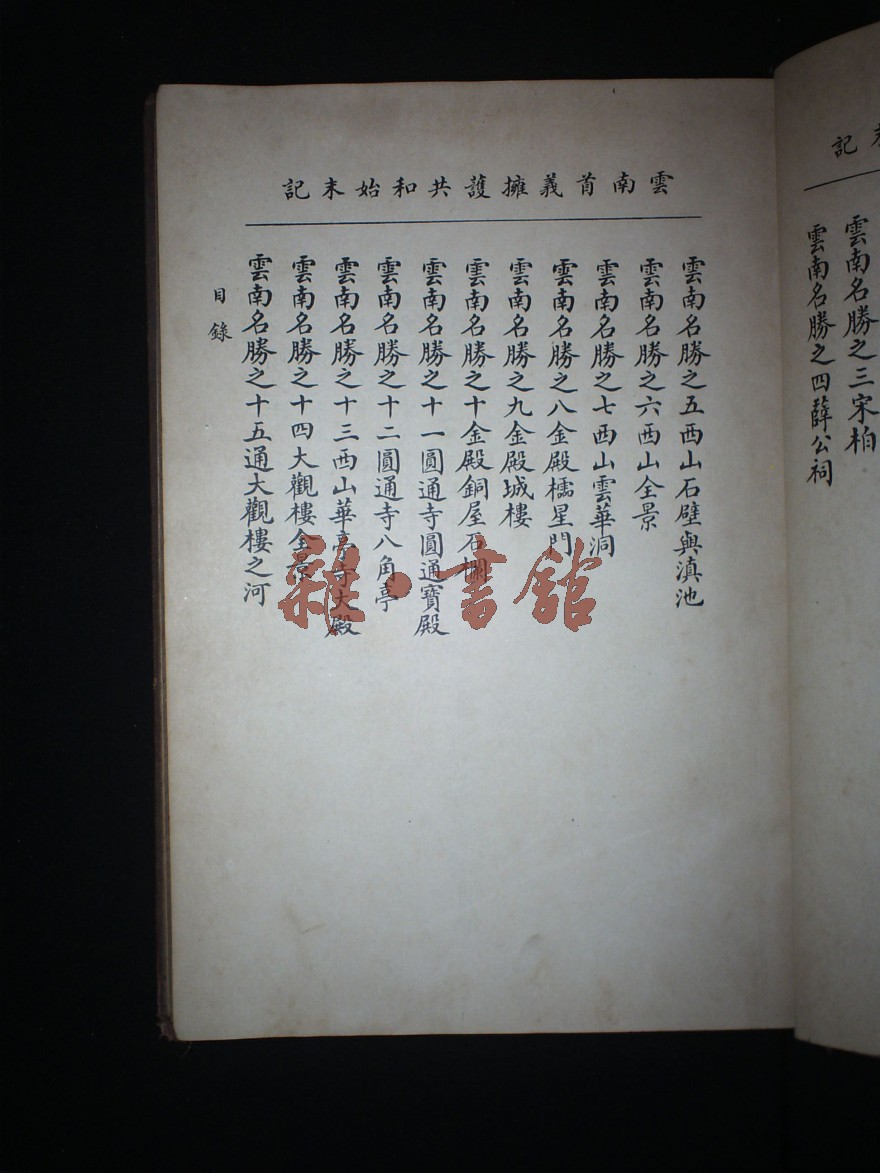 記 末
雲南名勝之三宋柏
雲南名勝之四薛公祠
雲南首義擁護共和始末記
雲南名勝之五西山石壁與滇池
雲南名勝之六西山全景
雲南名勝之七西山雲華洞
雲南名勝之八金殿櫺星門
雲南名勝之九金殿城樓
雲南名勝之十金殿銅屋石欄
雲南名勝之十一圓通寺圓通寶殿
雲南名勝之十二圓通寺八角亭
雲南名勝之十三西山華亭寺大殿
雲南名勝之十四大觀樓全景
雲南名勝之十五通大觀樓之河
目錄
雜·書館